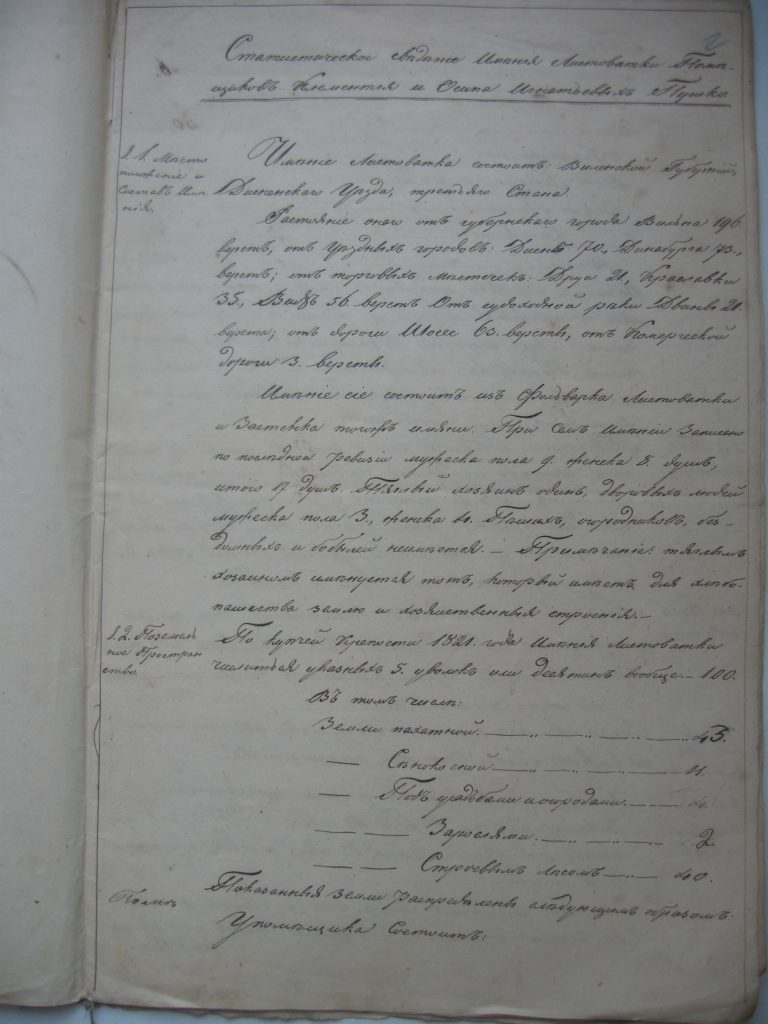 2
Статистическое свѣденіе Имѣнія Листоватки Помѣ-
щиковъ Клементія и Осипа Игнатьевыхъ Пушки
§ 1. Мѣсто
положеніе и
Составъ Имѣ-
нія.
Имѣніе Листоватка состоитъ: Виленской Губерніи,
Дисненскаго Уѣзда, третьяго Стана.
Растояніе онаго отъ губернскаго города Вильна 196.
верстъ, отъ Уѣздныхъ городовъ: Дисны 70., Динабурга 73.,
верстъ; отъ торговыхъ мѣстечекъ: Друи 21., Краславки
35., Видзъ 56. верстъ Отъ судоходной рѣки Двины 21.
верста; отъ дороги Шоссе 63. версты, отъ Комерческой
дороги 3. версты.
Имѣніе сіе состоитъ изъ Фольварка Листоватки
и Застенка тогожъ имяни. При Семъ Имѣніи Записано
по последной ревизіи мужеска пола 9. женска 8. душъ,
итого 17. душъ. Тяглый хозяинъ одинъ, дворовыхъ людей
мужеска пола 3., женска 4. Пѣшихъ, огородниковъ, без-
домныхъ и бобылей неимѣется. — Примѣчаніе: тяглымъ
хозаиномъ имѣнуется тотъ, который имѣетъ для хлѣбо-
пашества землю и хозяиственныя строенія. —
§ 2. Поземель
ное Простран
ство.
По купчей Крепости 1821. года Имѣнія Листоватки
числиться указныхъ 5. уволокъ или десятинъ вообще. — 100.
Въ томъ числѣ:
Земли пахатной. — 43.
— Сѣнокосной — 11.
— Подъ усадьбами и огородами. — 4.
— — Зарослями. — 2.
— — Строевымъ лѣсомъ — 40.
Показанныя Земли распределены слѣдующимъ образомъ:
У помѣщика Состоитъ: